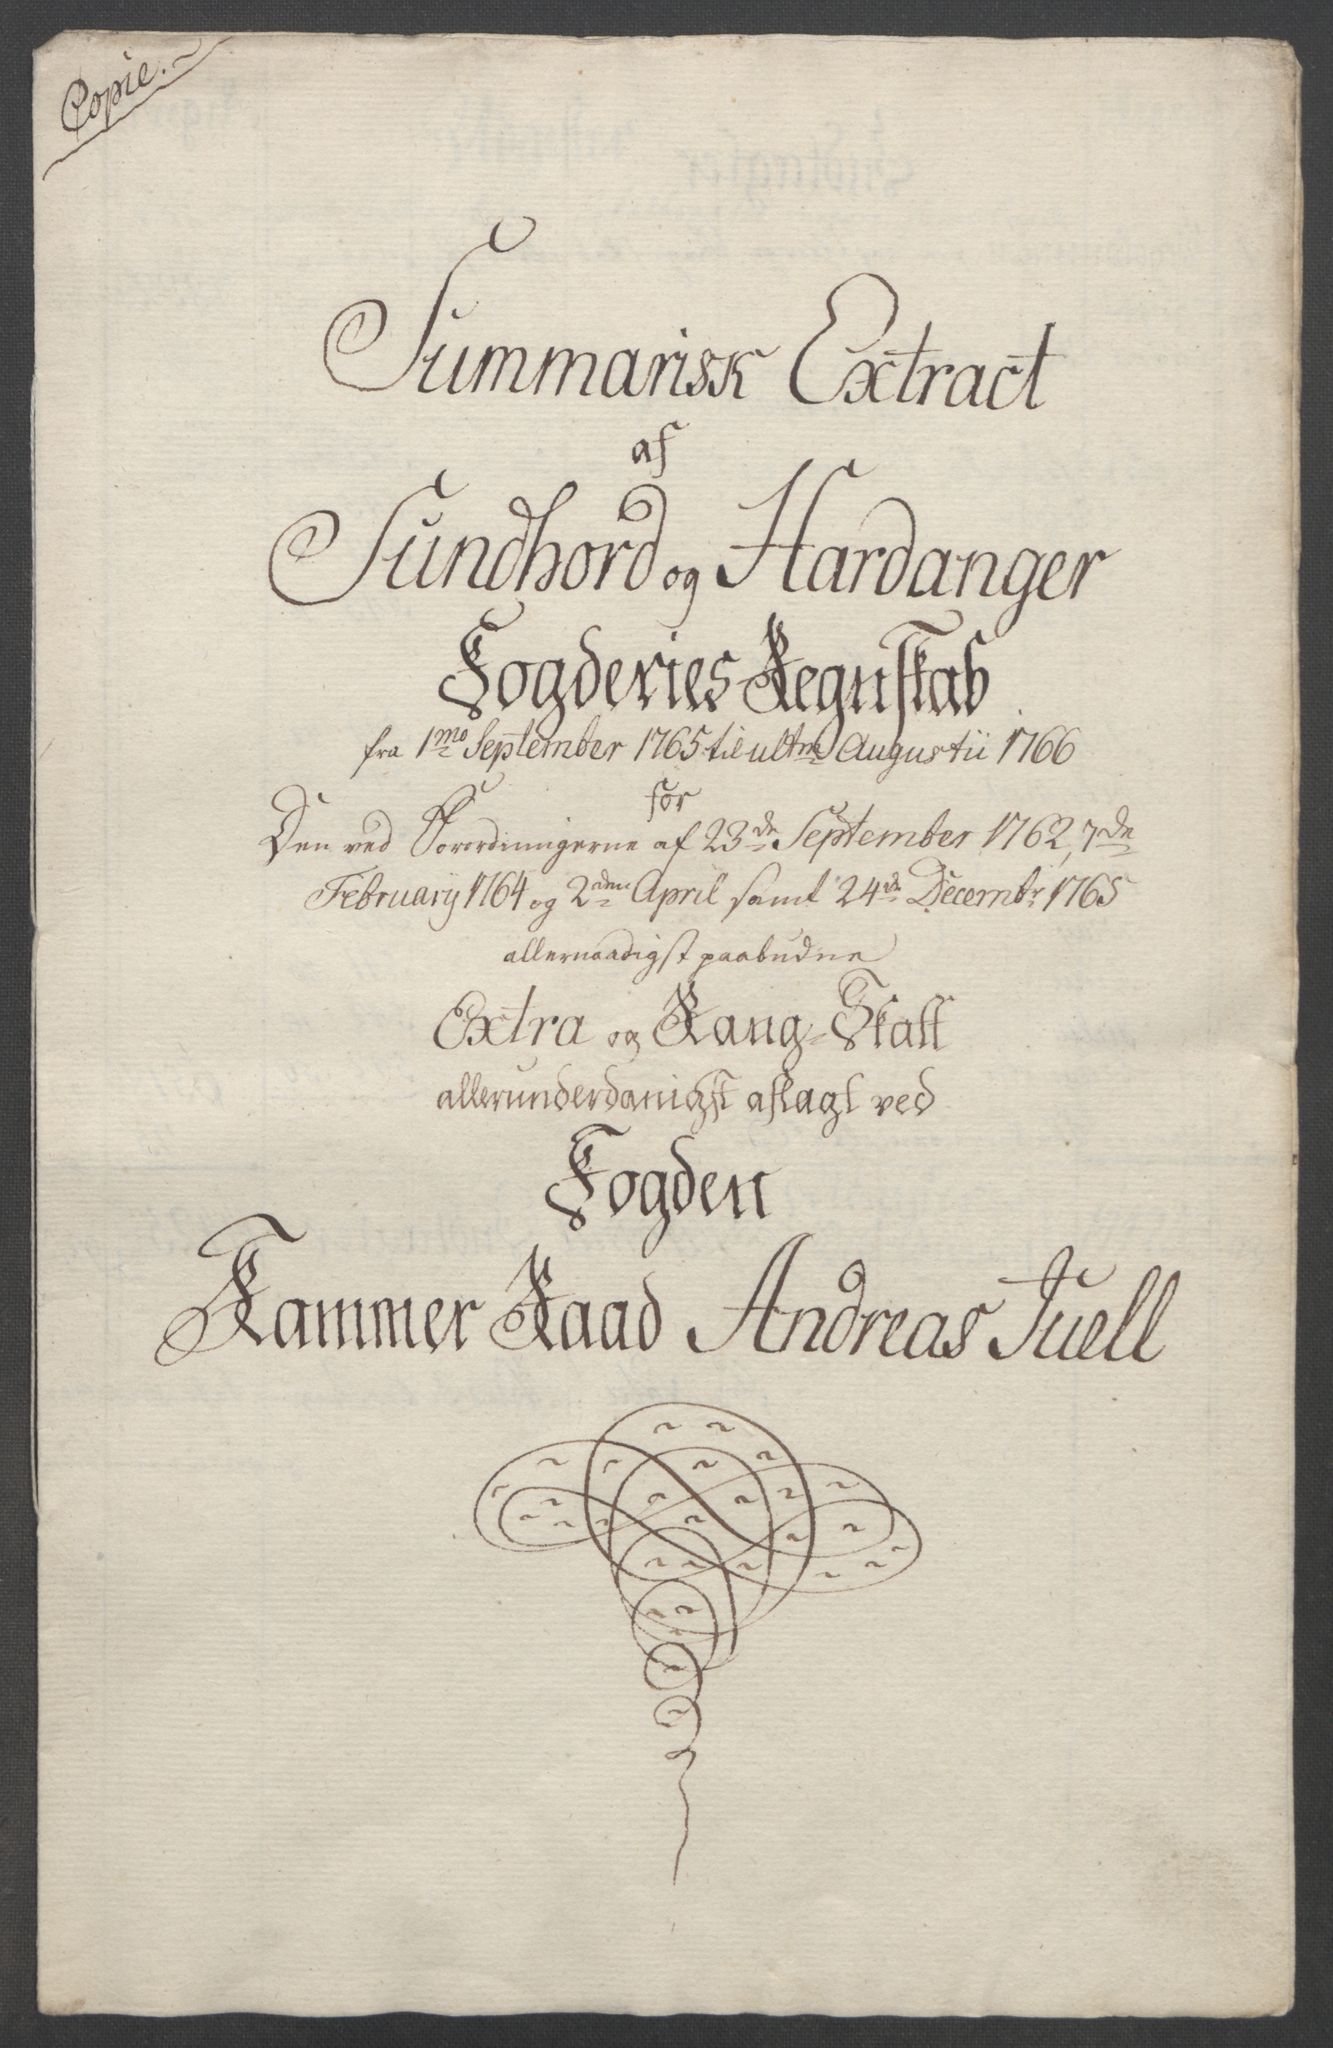 Copie.
Summarisk Extract
af
Sundhord og Hardanger
Fogderies Regnskab
fra 1mo September 1765 til ultm Augustii 1766
for
Den ved Forordningerne af 23de September 1762, 7de
February 1764 og 2den April samt 24de Decembr 1765
allernaadigst paabudne
Extra og Rang-Skatt
allerunderdanigst aflagt ved
Fogden
Kammer Raad Andreas Juell